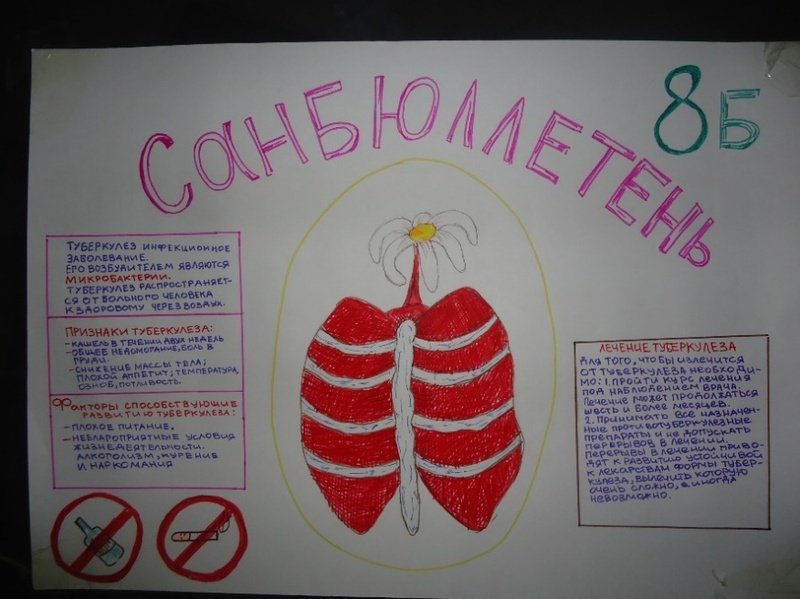 СанБЮЛЛЕТЕНЬ
8Б
ТУБЕРКУЛЕЗ ИНФЕКЦИОННОЕ
ЗАБОЛЕВАНИЕ.
ЕГО ВОЗБУДИТЕЛЕМ ЯВЛЯЮТСЯ
МИКРОБАКТЕРИИ.
ТУБЕРКУЛЕЗ РАСПРОСТРАНЯЕТ-
СЯ ОТ БОЛЬНОГО ЧЕЛОВЕКА
К ЗДОРОВОМУ ЧЕРЕЗ ВОЗДУХ.
ПРИЗНАКИ ТУБЕРКУЛЕЗА:
-КАШЕЛЬ В ТЕЧЕНИИ ДВУХ НЕДЕЛЬ
-ОБЩЕЕ НЕДОМОГАНИЕ, БОЛЬ В
ГРУДИ.
-СНИЖЕНИЕ МАССЫ ТЕЛА;
ПЛОХОЙ АППЕТИТ; ТЕМПЕРАТУРА,
ОЗНОБ, ПОТЛИВОСТЬ.
ФАКТОРЫ СПОСОБСТВУЮЩИЕ
РАЗВИТИЮ ТУБЕРКУЛЕЗА:
-ПЛОХОЕ ПИТАНИЕ.
-НЕБЛАРОПРИЯТНЫЕ УСЛОВИЯ
ЖИЗНЕДЕЯТЕЛЬНОСТИ.
АЛКОГОЛИЗМ, КУРЕНИЕ
И НАРКОМАНИЯ
ЛЕЧЕНИЕ ТУБЕРКУЛЕЗА
Для того, чтобы излечится
от туберкулеза необходи-
мо: 1. пройти курс лечения
под наблюдением врача.
Лечение может продолжаться
шесть и более месяцев.
2. Принимать все назначен-
ные противотуберкулезные
препараты и не допускать
перерывов в лечении.
Перерывы в лечении приво-
дят к развитию устойцивой
к лекарствам формы тубер-
кулеза, вылечить которую
очень сложно, а иногда
невозможно.